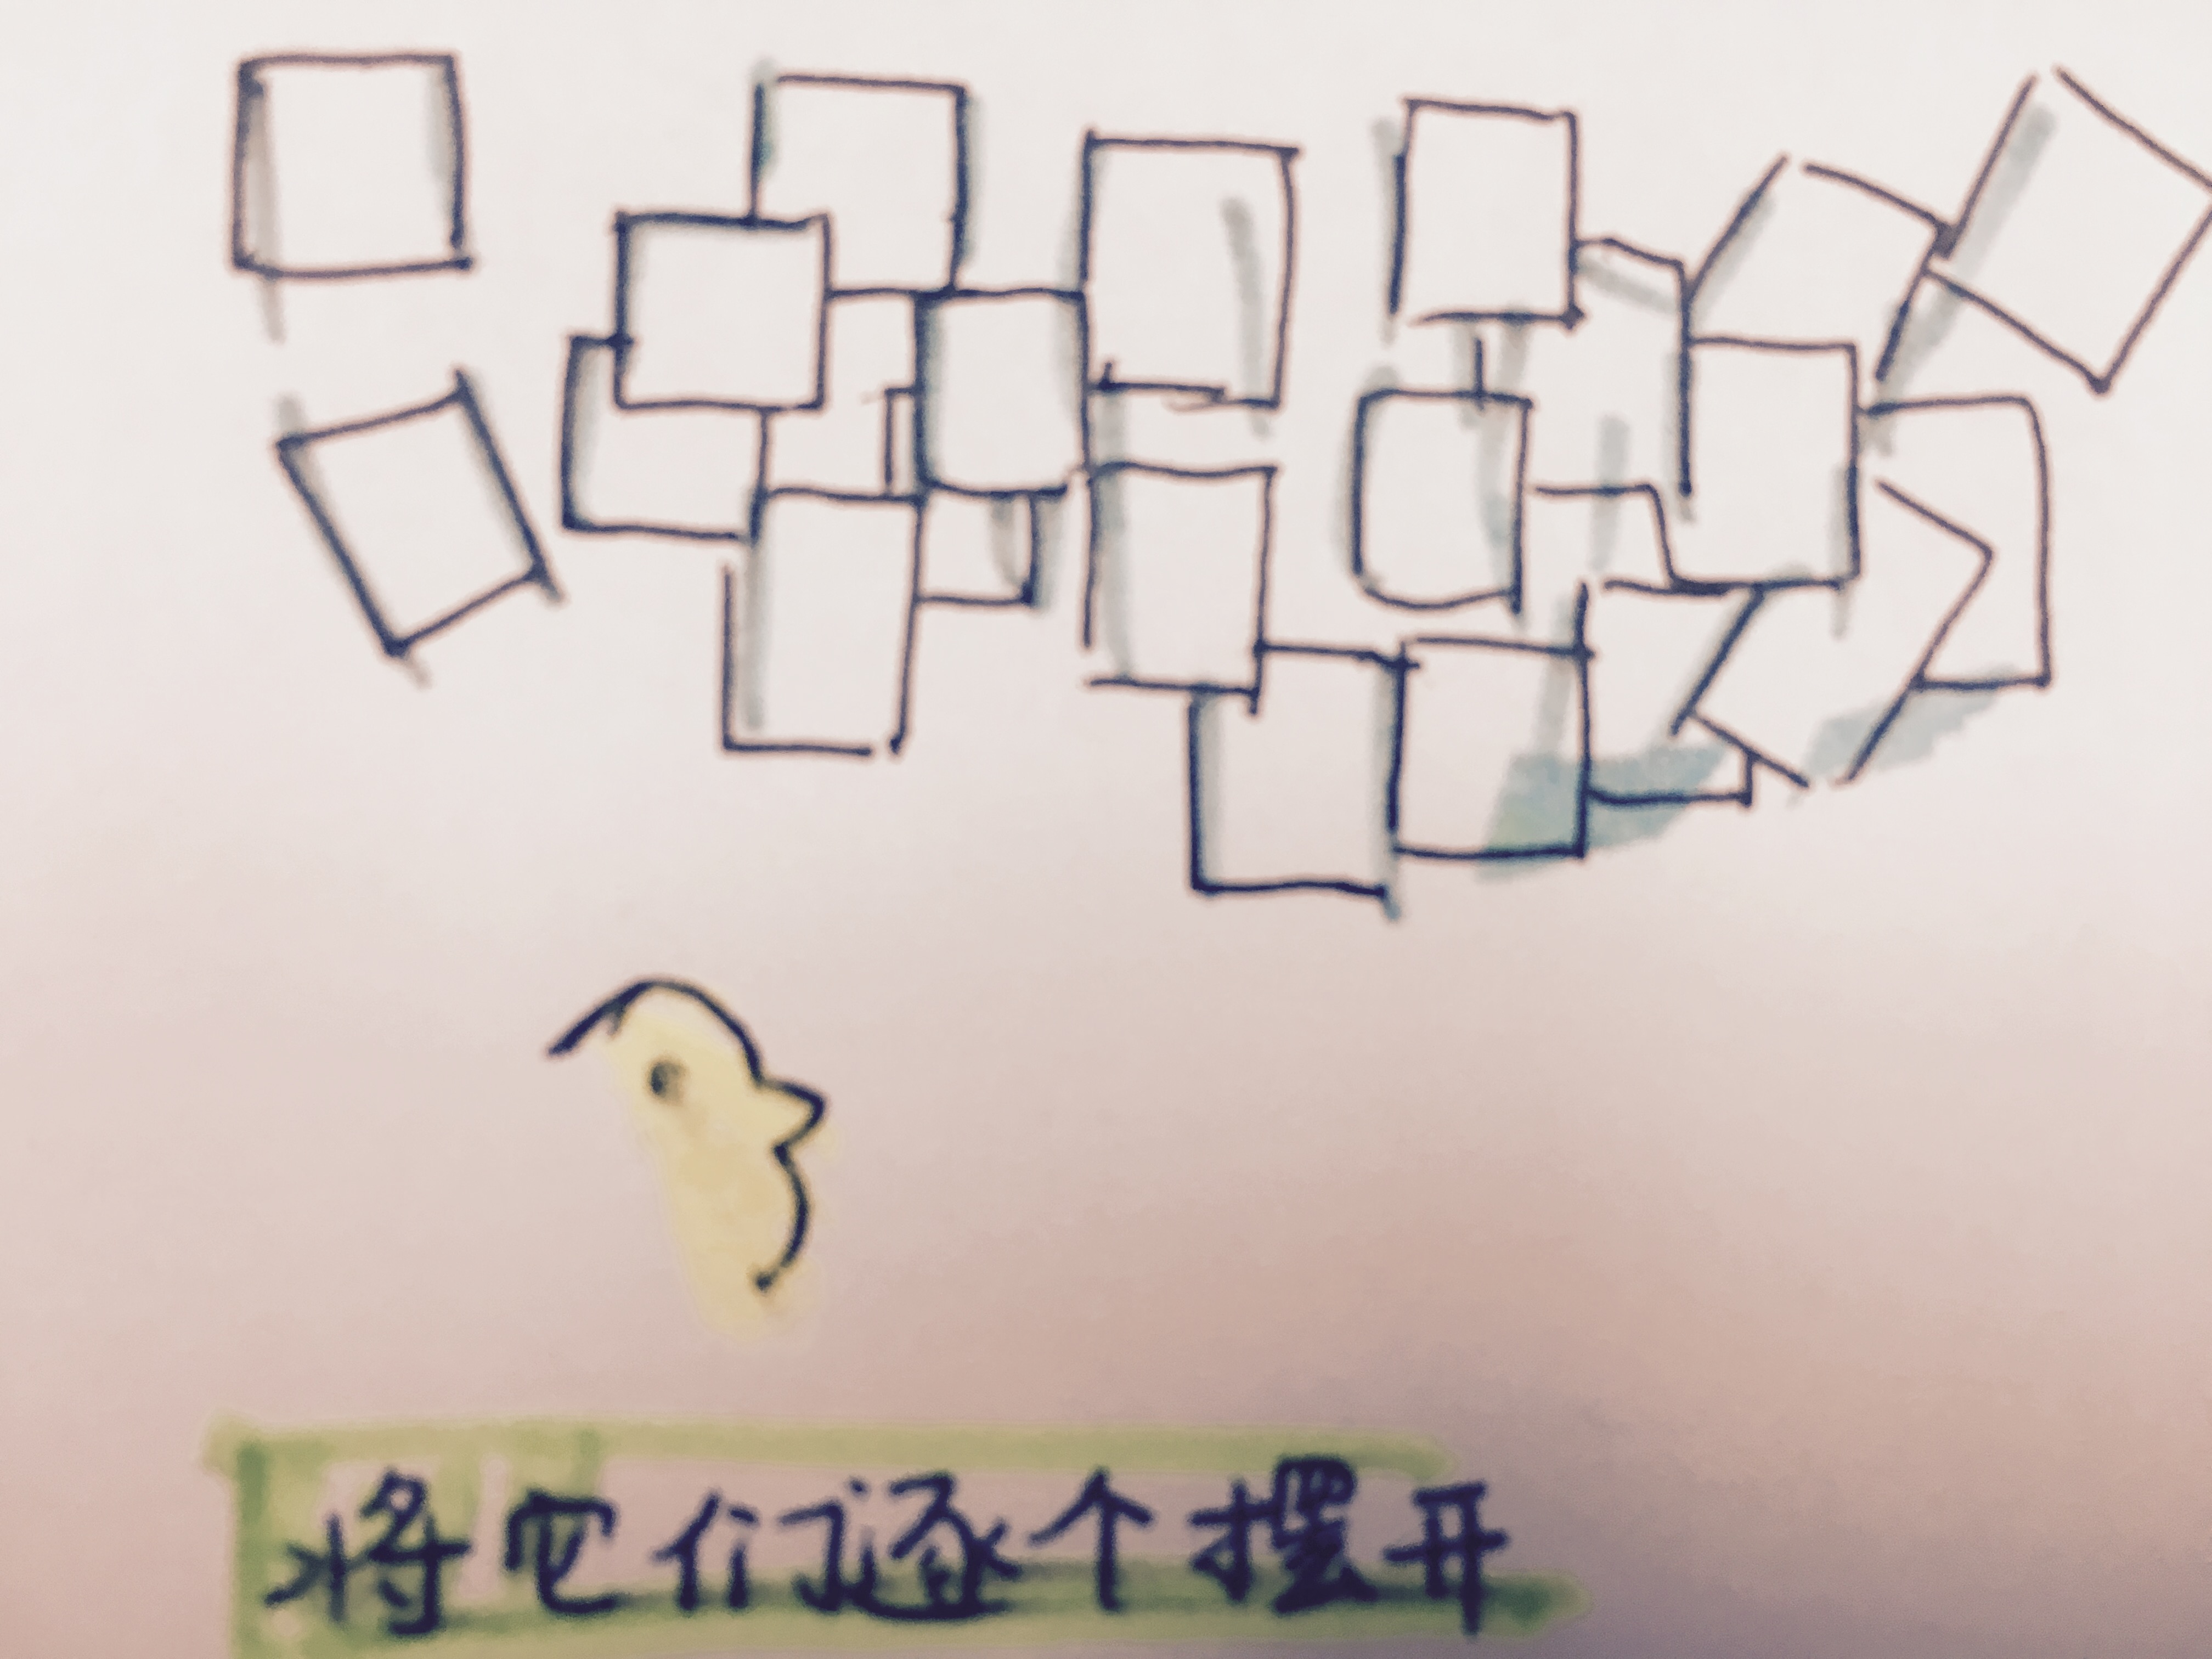 将它们逐个摆开